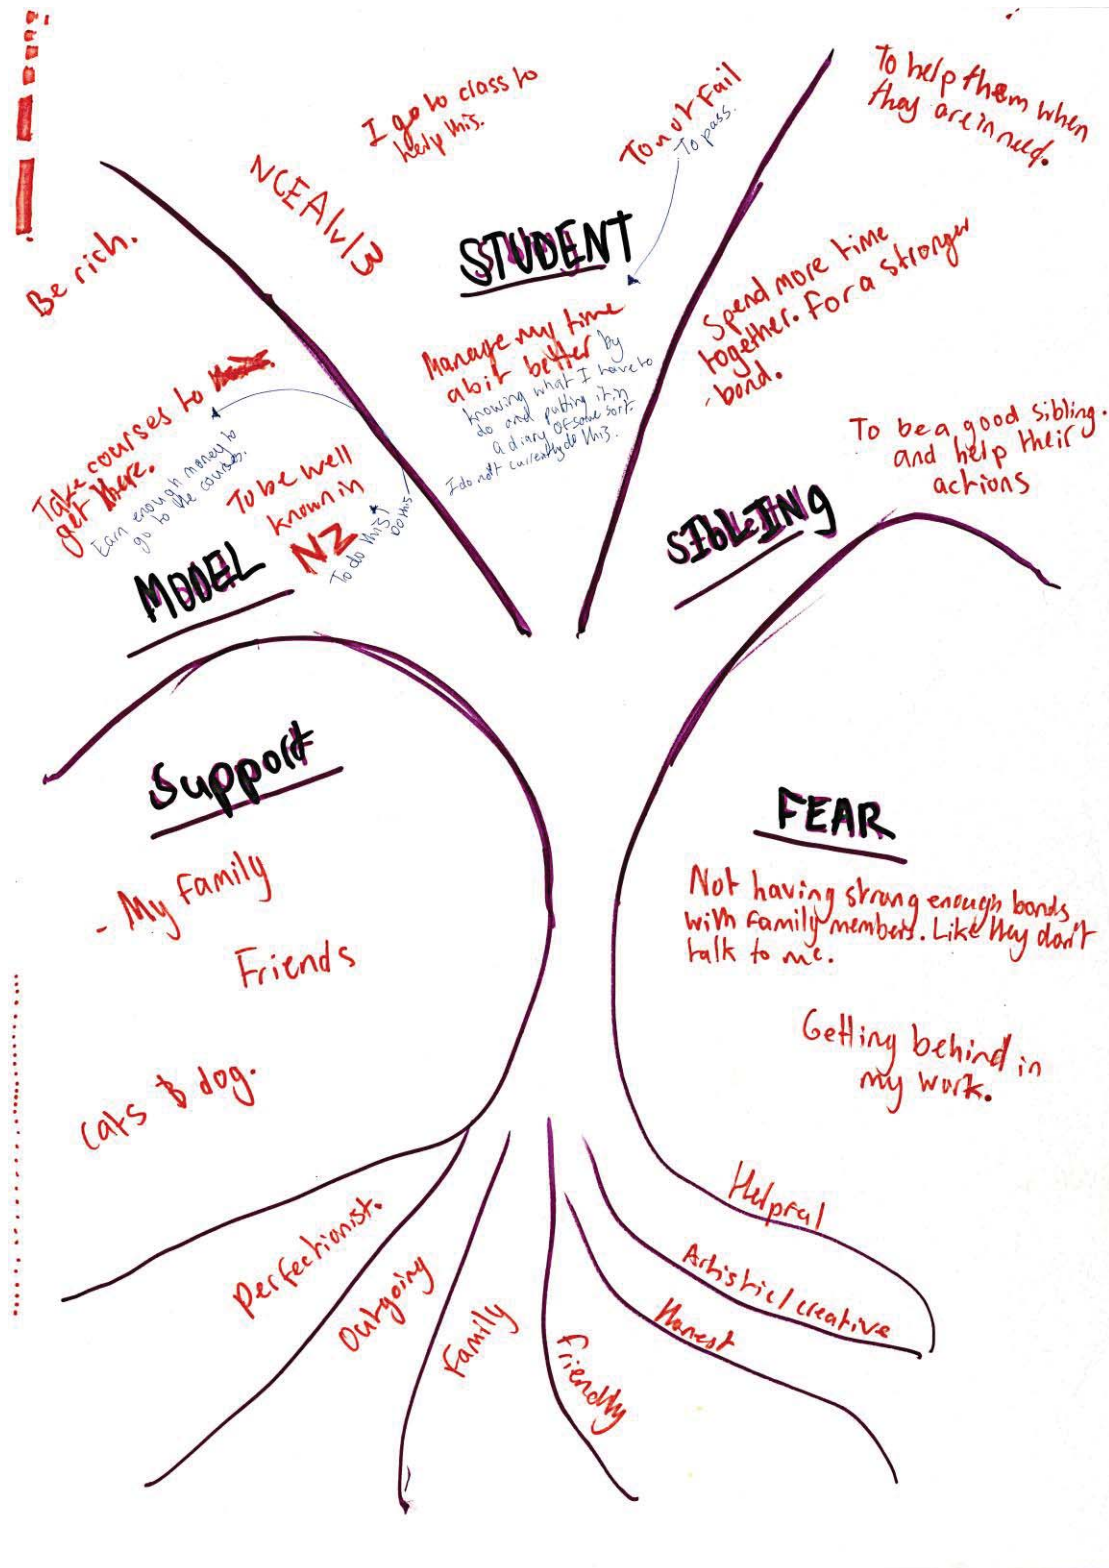 I go to class to
help this.
NCEA lvl 3
To not fail
To pass.
STUDENT
Manage my time
a bit better by
knowing what I have to
do and putting it in
a diary of some sort.
I do not currently do this.
To help them when
they are in need.
Spend more time
together. For a stronger
bond.
To be a good sibling.
and help their
actions
SIBLING
Be rich.
Take courses to
get there.
Earn enough money to
go to the courses.
To be well
known in
NZ
To do this,
Do this
MODEL
Support
- My Family
Friends
Cats & dog.
FEAR
Not having strong enough bonds
with family members. Like they don't
talk to me.
Getting behind in
my work.
Perfectionist.
Outgoing
Family
Friendly
Honest
Artistic/creative
Helpful